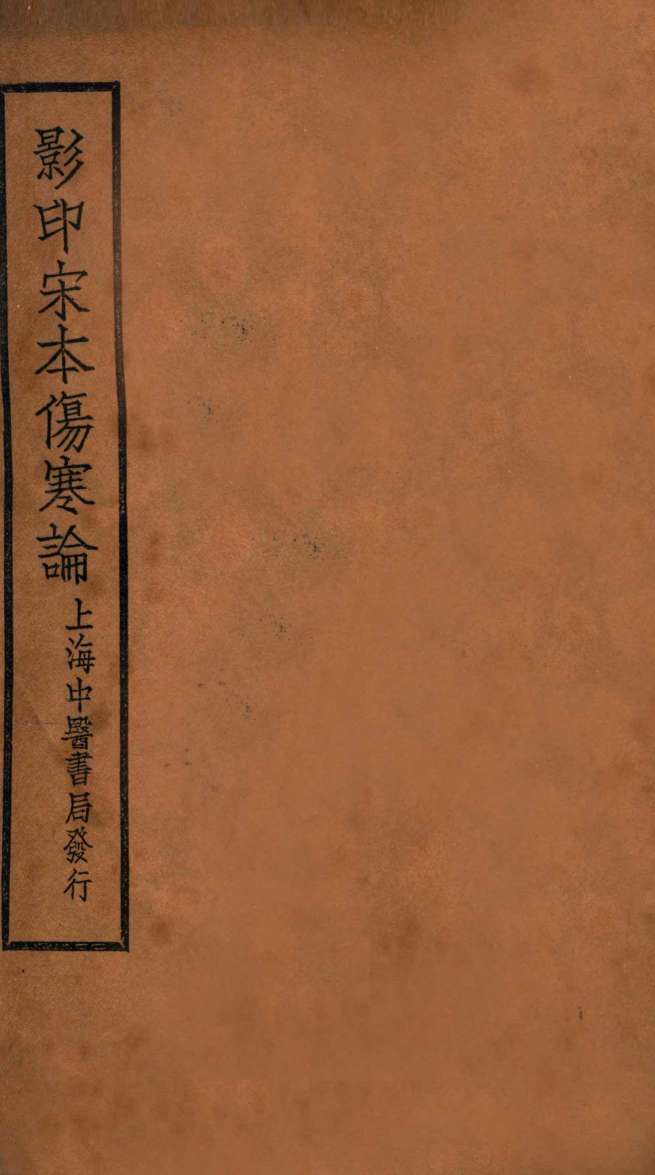 影印宋本傷寒論
上海中醫書局發行